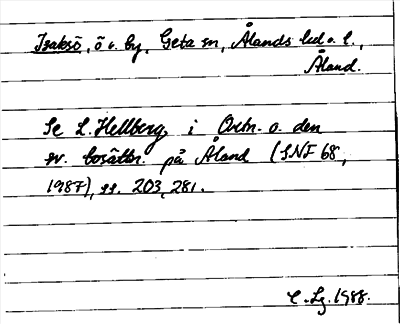 Isaksö, ö o. by, Geta sn, Ålands lud o. l.,
Åland.
Se L. Hellberg i Ortn. o. den
sv. bosättn. på Åland (SNF 68,
1987), ss. 203, 281.
C. Lg. 1988.